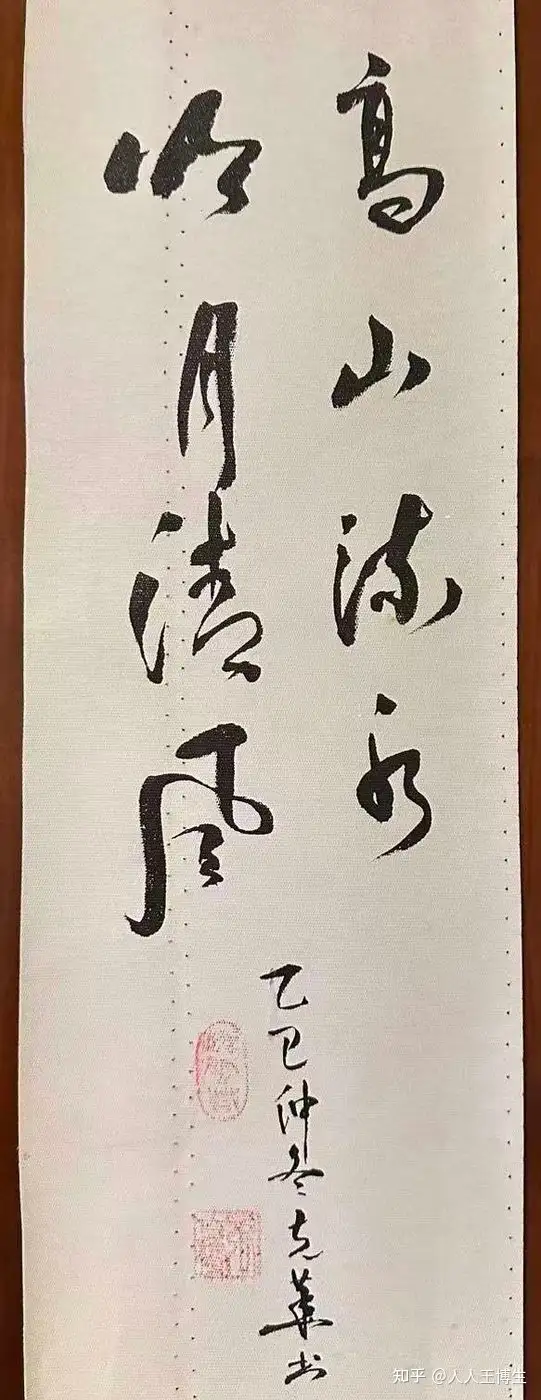 高山流水
吟月清风
乙巳仲冬克华书
知乎 @人人王博生